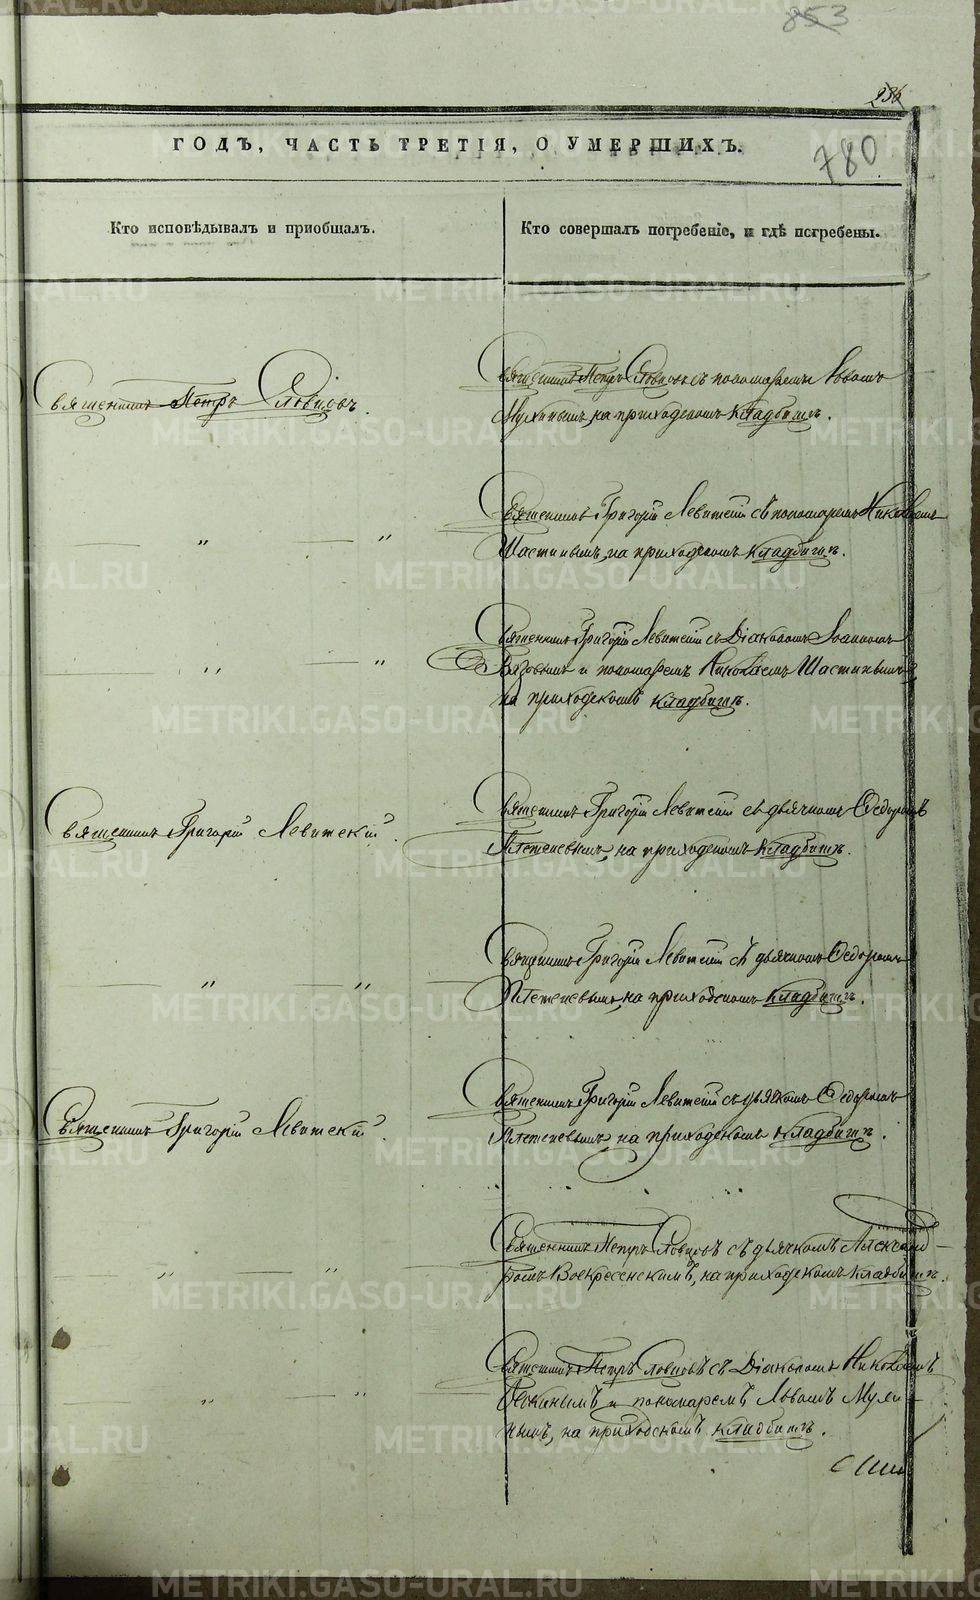 853
286
780
ГОДЪ, ЧАСТЬ ТРЕТІЯ, О УМЕРШИХЪ.
Кто исповѣдывалъ и приобщалъ.
Кто совершалъ погребеніе, и гдѣ погребены.
Священникъ Петръ Словцовъ.
Священникъ Петръ Словцовъ съ пономаремъ Іовомъ
Мухинымъ, на приходскомъ кладбищѣ.
„ „
Священникъ Григорій Левитскій съ пономаремъ Николаемъ
Шастинымъ, на приходскомъ кладбищѣ.
„ „
Священникъ Григорій Левитскій съ Діакономъ Іоанномъ
и пономаремъ Николаемъ Шастинымъ,
на приходскомъ кладбищѣ.
Священникъ Григорій Левитскій.
Священникъ Григорій Левитскій съ дьячкомъ Ѳедоромъ
Плетеневымъ, на приходскомъ кладбищѣ.
„ „
Священникъ Григорій Левитскій съ дьячкомъ Ѳедоромъ
Плетеневымъ, на приходскомъ кладбищѣ.
Священникъ Григорій Левитскій.
Священникъ Григорій Левитскій съ дьячкомъ Ѳедоромъ
Плетеневымъ, на приходскомъ кладбищѣ.
„ „
Священникъ Петръ Словцовъ съ дьячкомъ Александ-
ромъ Воскресенскимъ, на приходскомъ кладбищѣ.
„ „
Священникъ Петръ Словцовъ съ Діакономъ Николаемъ
и пономаремъ Іовомъ Мухи-
нымъ, на приходскомъ кладбищѣ.
METRIKI.GASO-URAL.RU